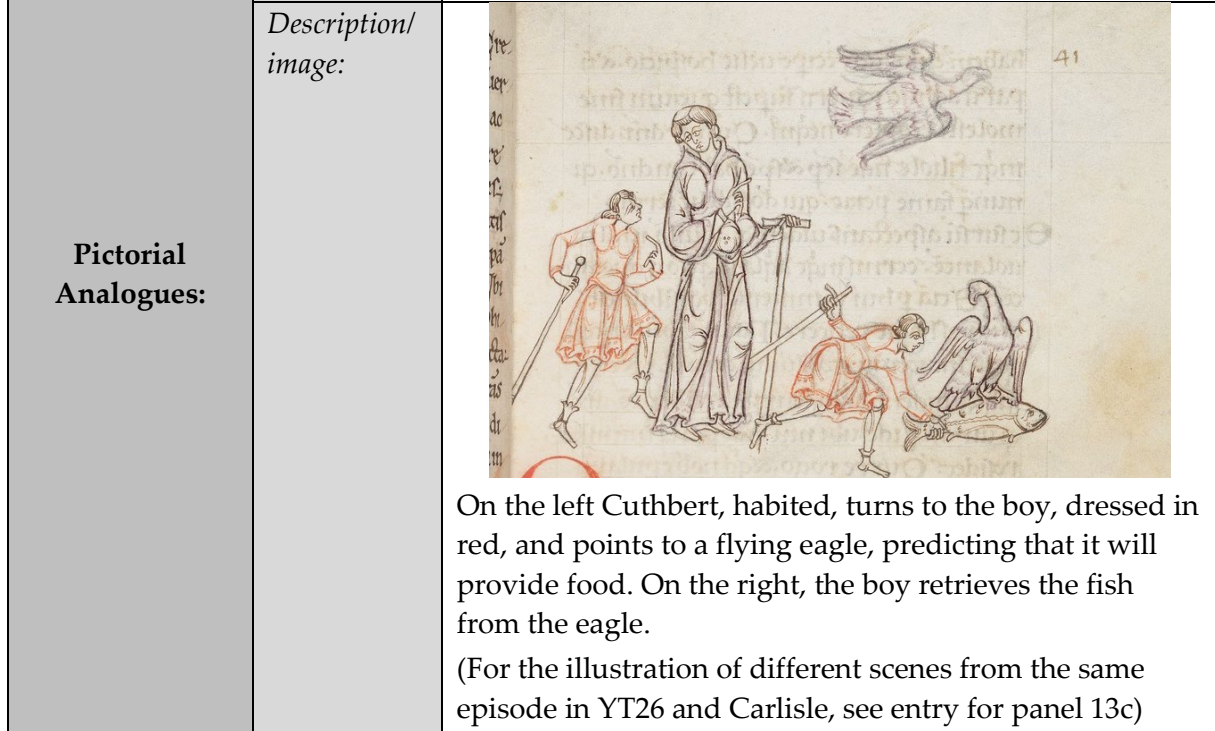 Description/
image:
41
Pictorial
Analogues:
On the left Cuthbert, habited, turns to the boy, dressed in
red, and points to a flying eagle, predicting that it will
provide food. On the right, the boy retrieves the fish
from the eagle.
(For the illustration of different scenes from the same
episode in YT26 and Carlisle, see entry for panel 13c)